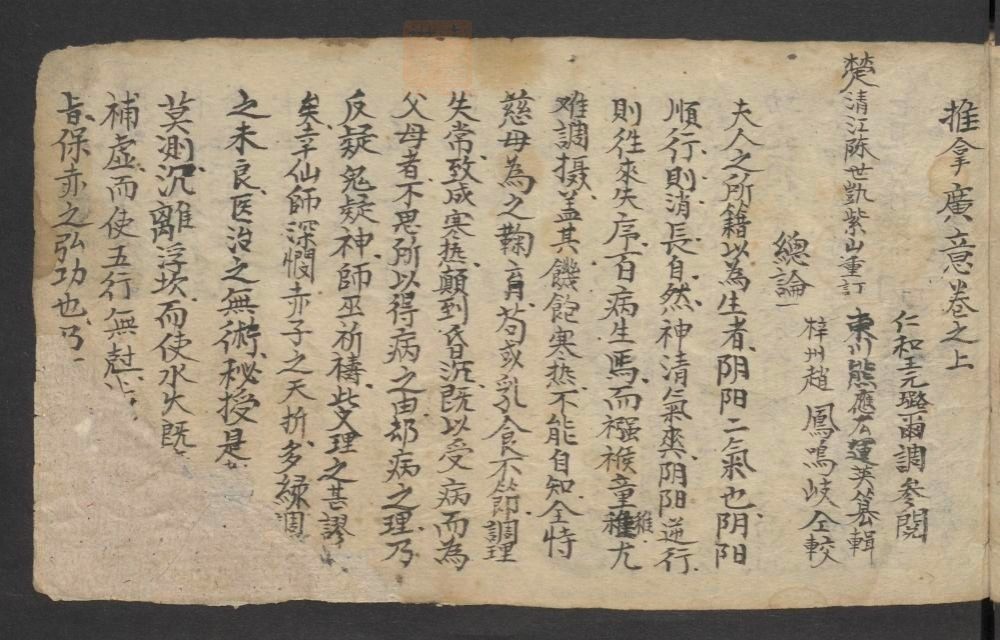 推拿廣意卷之上
仁和王元璐爾調參閱
楚清江陈世凱紫山重訂 東川熊應雄運英纂輯
梓州趙鳳鳴岐仝較
總論
夫人之所籍以為生者阴阳二氣也阴阳
順行則消長自然神清氣爽阴阳逆行
則徃來失序百病生焉而襁褓童稚尤
难調摄盖其饑飽寒热不能自知全恃
慈母為之鞠育苟或乳食不節調理
失常致成寒热顛到昏沉既以受病而為
父母者不思所以得病之由却病之理乃
反疑鬼疑神師巫祈禱此又理之甚謬
矣幸仙師深憫赤子之夭折多緣調
之未良医治之無術秘授是
莫測沉離浮坎而使水火既
補虛而使五行無尅
旨保赤之弘功也乃